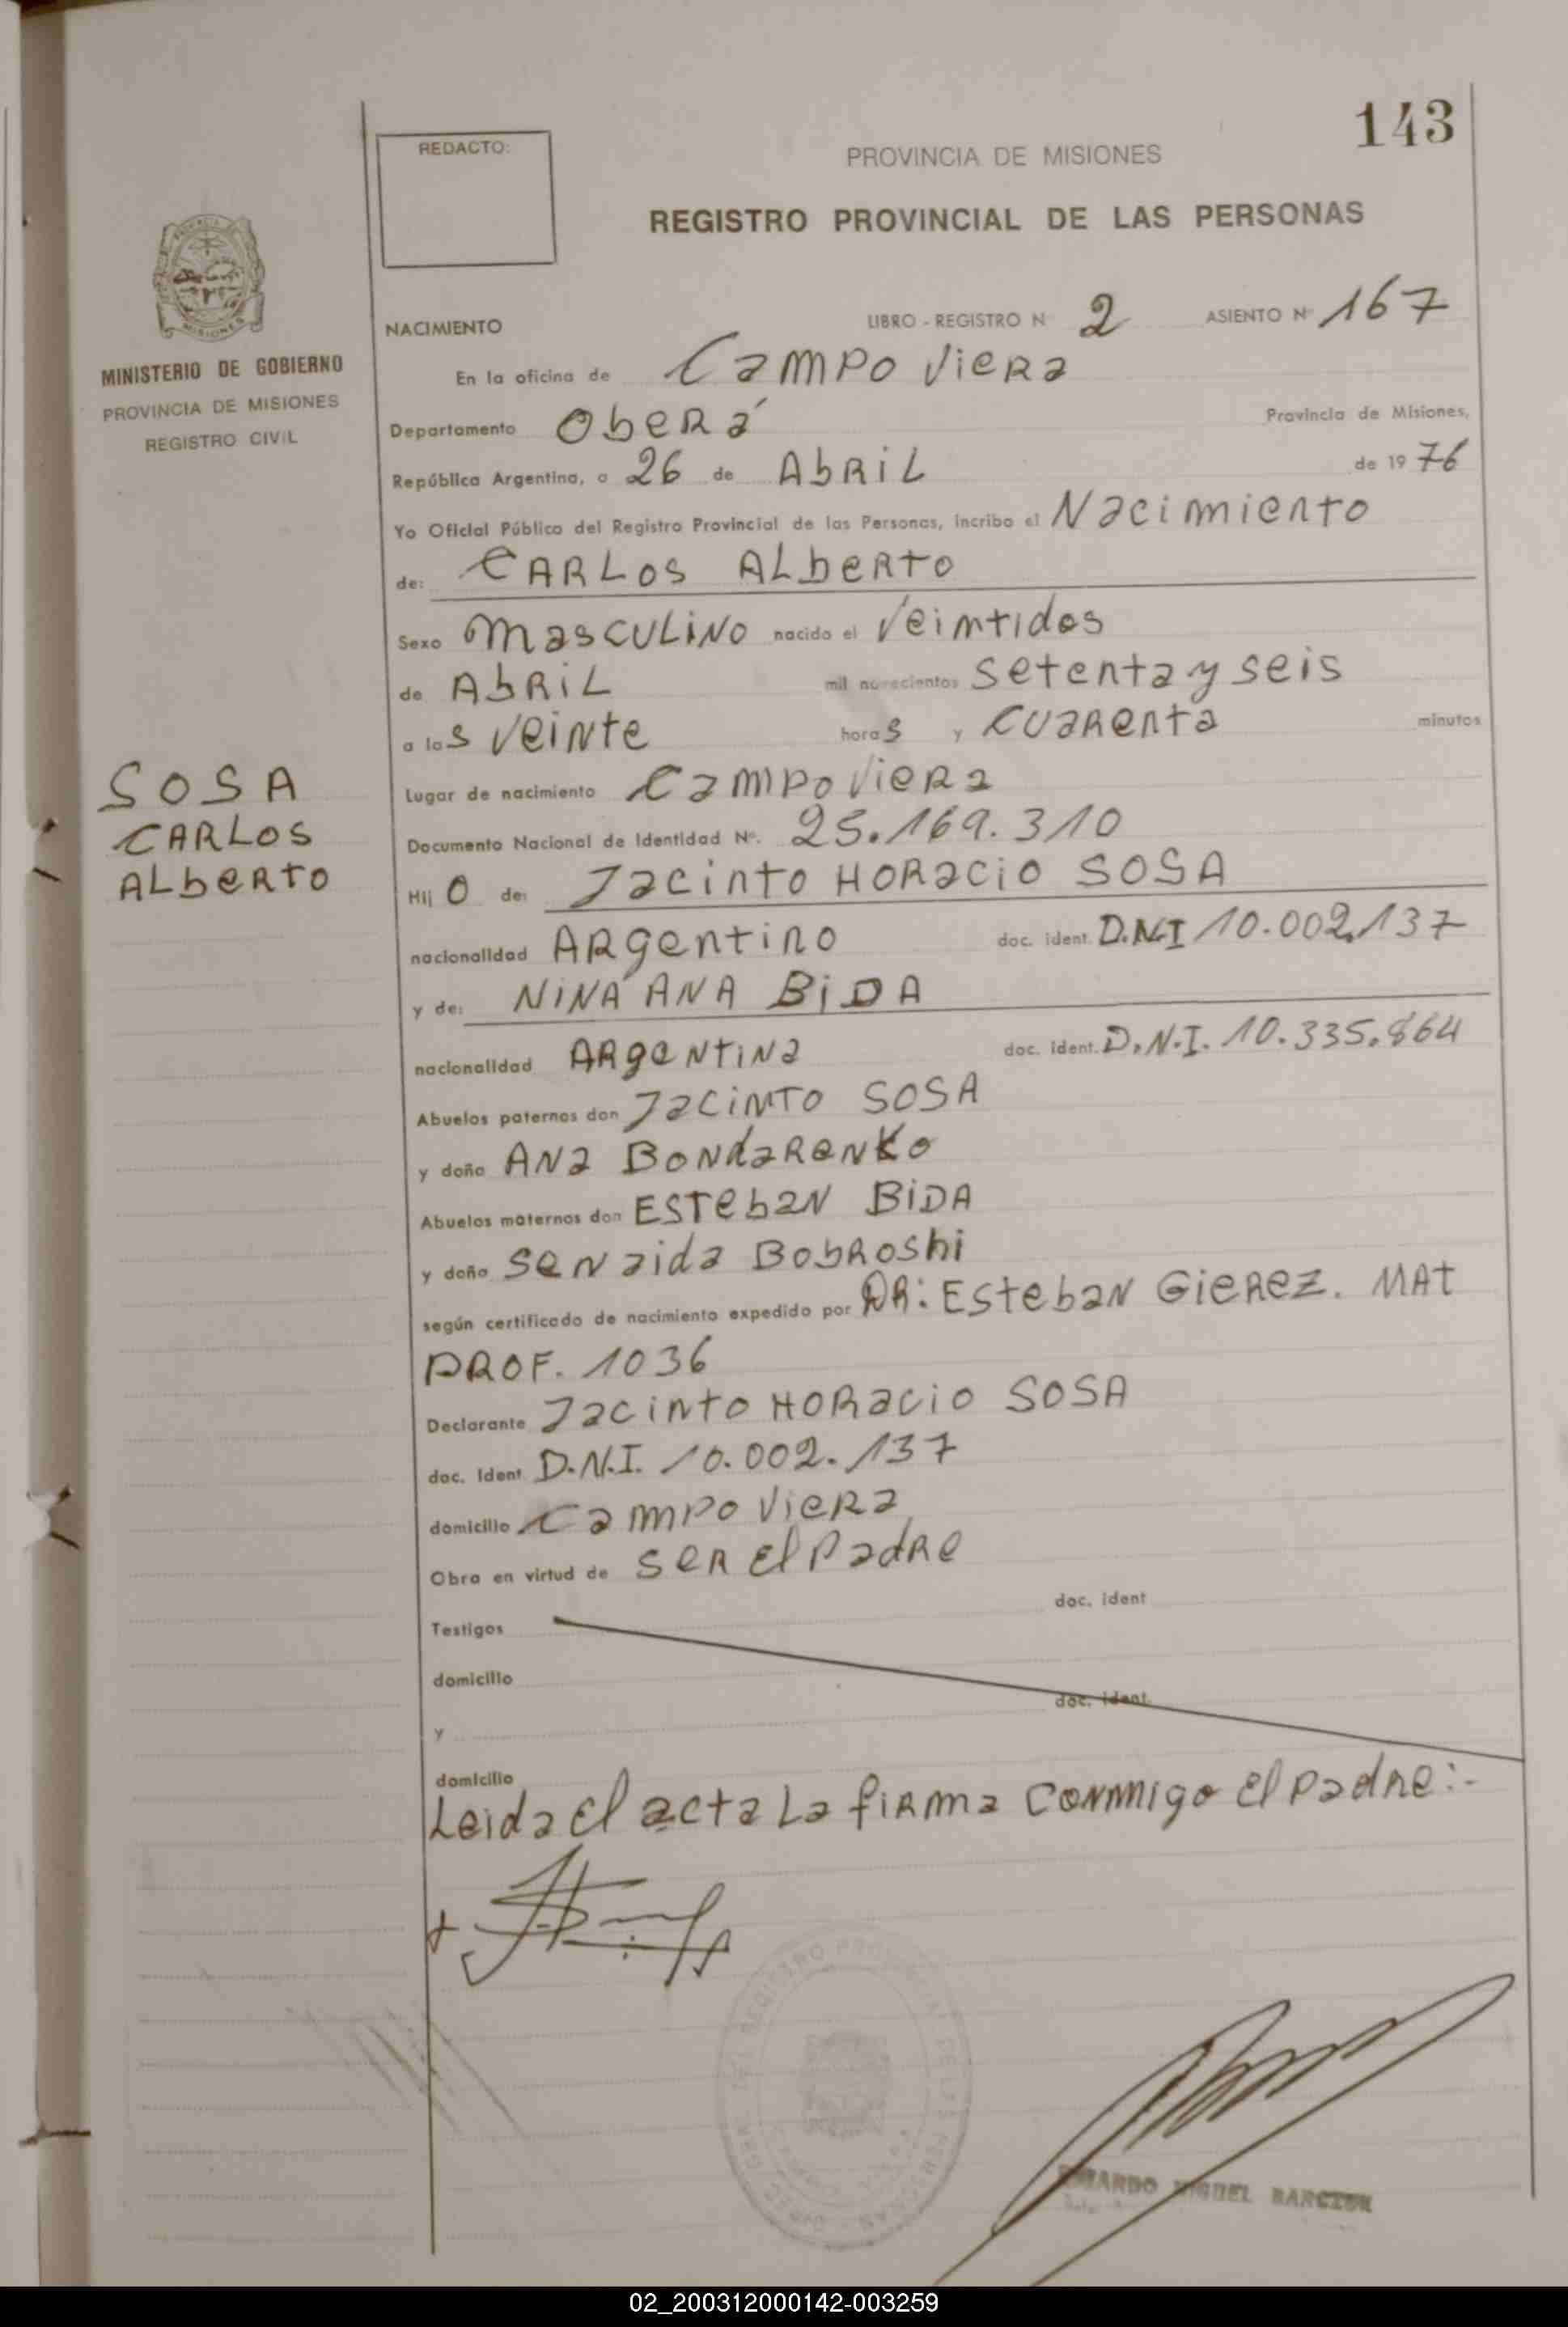 143
REDACTO:
PROVINCIA DE MISIONES
REGISTRO PROVINCIAL DE LAS PERSONAS
MISIONES
MINISTERIO DE GOBIERNO
PROVINCIA DE MISIONES
REGISTRO CIVIL
NACIMIENTO LIBRO - REGISTRO N 2 ASIENTO Nº 167
En la oficina de Campo Viera
Departamento Oberá Provincia de Misiones,
República Argentina, a 26 de Abril de 1976
Yo Oficial Público del Registro Provincial de las Personas, incribo el Nacimiento
de: CARLOS ALbERTO
Sexo MASCULINO nacido el Veimtidos
de Abril mil novecientos setenta y seis
a las veinte horas y cuarenta minutos
SOSA
CARLOS
ALbERTO
Lugar de nacimiento Campo Viera
Documento Nacional de Identidad Nº. 25.169.310
Hijo de: Jacinto HORacio SOSA
nacionalidad Argentino doc. ident. D.N.I 10.002.137
y de: NINA ANA BiDA
nacionalidad Argentina doc. ident. D.N.I. 10.335.864
Abuelos paternos don Jacinto SOSA
y doña Ana Bondarenko
Abuelos maternos don Esteban BiDA
y doña Senaida Bobroshi
según certificado de nacimiento expedido por DR: Esteban Gierez. MAT
PROF. 1036
Declarante Jacinto HORacio SOSA
doc. Ident D.N.I. 10.002.137
domicilio Campo Viera
Obra en virtud de ser el Padre
doc. ident
Testigos
domicilio
doc. ident.
y
domicilio
Leida el acta La firma conmigo el padre:-
MIGUEL
02_200312000142-003259